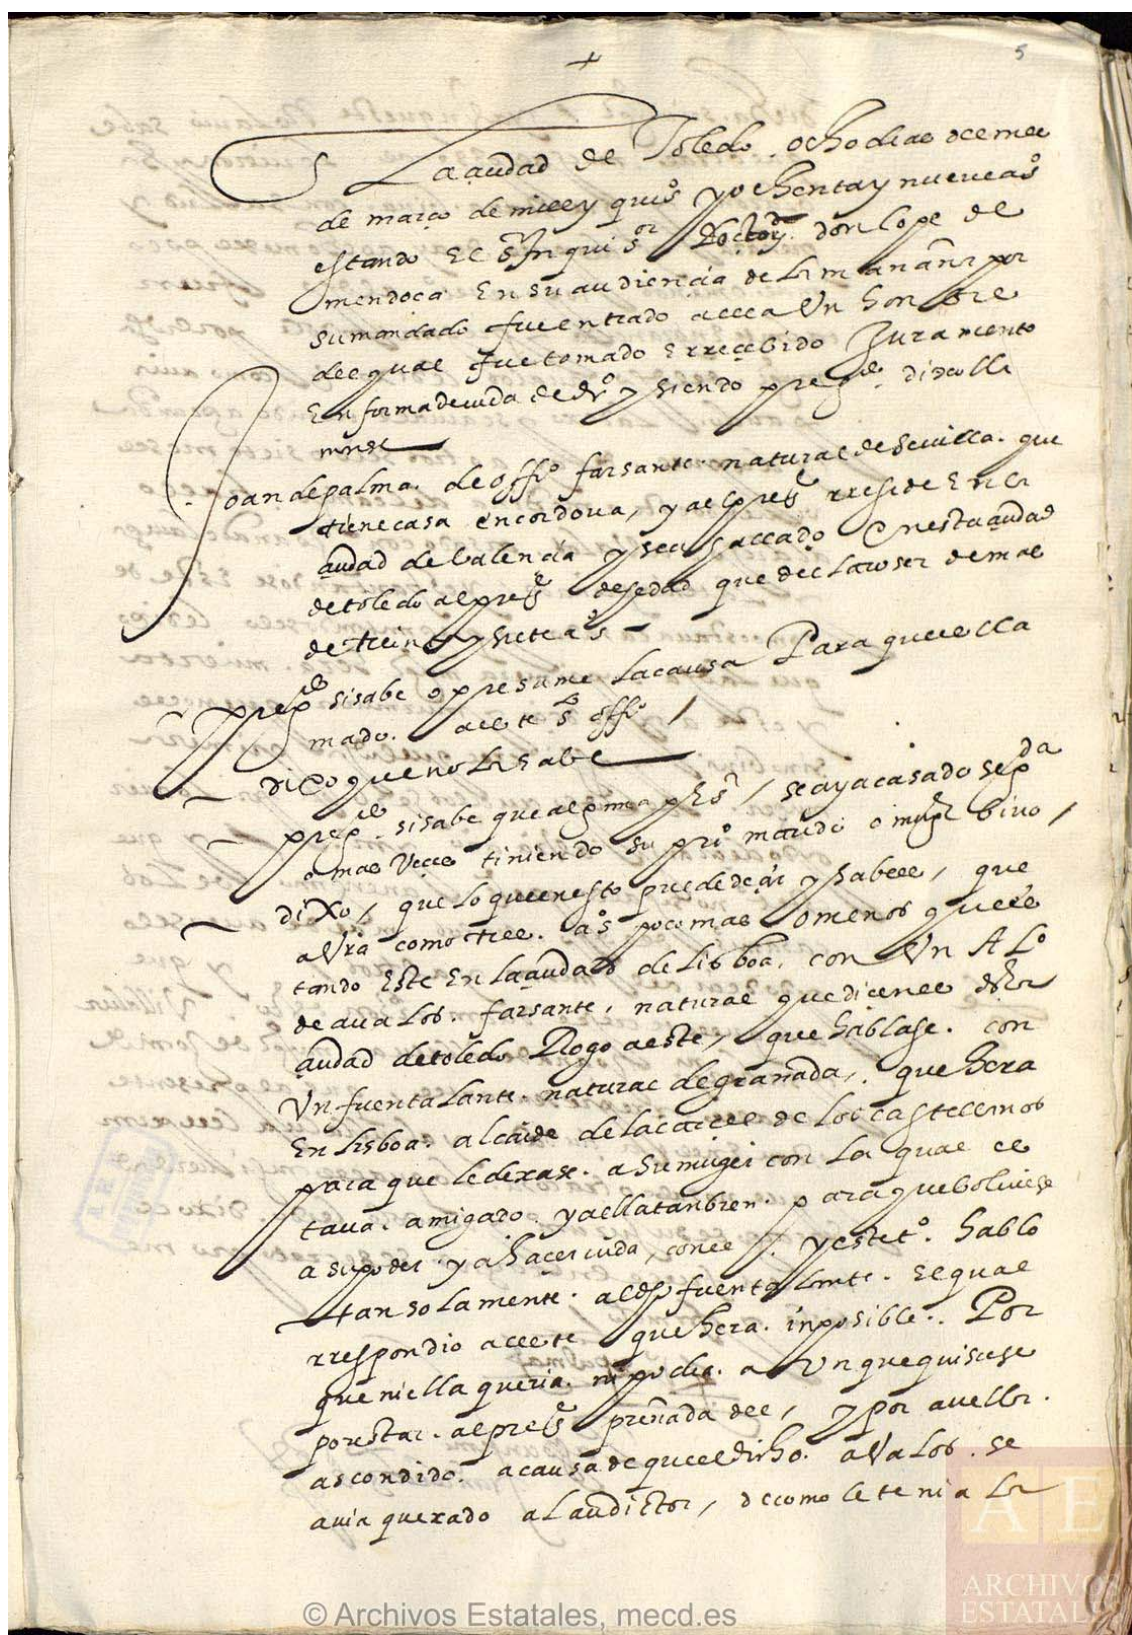 5
+
En La ciudad de Toledo ocho dias del mes
de março de mill y quis y ochenta y nueue as
estando El sr Inquisor Doctor don lope de
mendoça En su audiencia de la mañana por
su mandado fue entrado a ella Un honbre
del qual fue tomado E rreçebido Juramento
En forma deuida de dro y siendo pregdo dixo lla
marse
Joan de palma de offo farsante natural de Seuilla que
tiene casa en cordoua, y al pres rreside En la
ciudad de balencia y se a hallado En esta ciudad
de toledo al pres de hedad que declaro ser de mas
de treinta y siete as
pregdo si sabe o presume la causa Para que es lla
mado a este so offo /
Dixo que no la sabe
pregdo si sabe que alguna persa / se aya casado segda
o mas Veces tiniendo su pro marido o muger biuo /
diXo / que lo que en esto puede deçir y sabe es / que
aVra como tres as poco mas o menos que es
tando Este En la ciudad de Lisboa con Un Alo
de aualos farsante, natural que dicen es desta
ciudad de toledo Rogo a este / que hablase con
Un fuentalante natural de granada, que hera
En lisboa alcaide de la carcel de los castellanos
para que le dexase a su muger con la qual es
taua amigado y a ella tanbien para que bolviese
a su poder y a hacer uida con el / y este to hablo
tan solamente al dho fuentalante El qual
rrespondio a este que hera inposible Por
que ni ella queria ni podia aUnque quisiese
por estar al pres preñada del / y por auella
ascondido a causa de que el dicho aValos se
auia quexado al auditor / de como le tenia la
© Archivos Estatales, mecd.es
AE
ARCHIVOS
ESTATALES